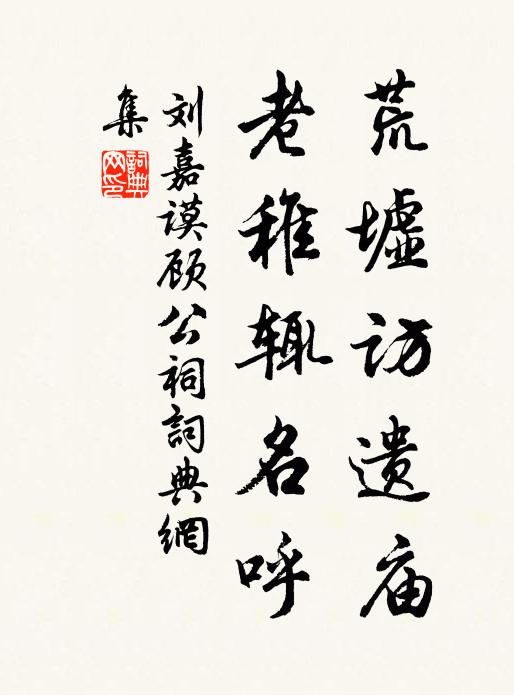 荒墟访遗庙
老稚辄名呼
刘嘉谟顾公祠詞典網
集
詞典网印